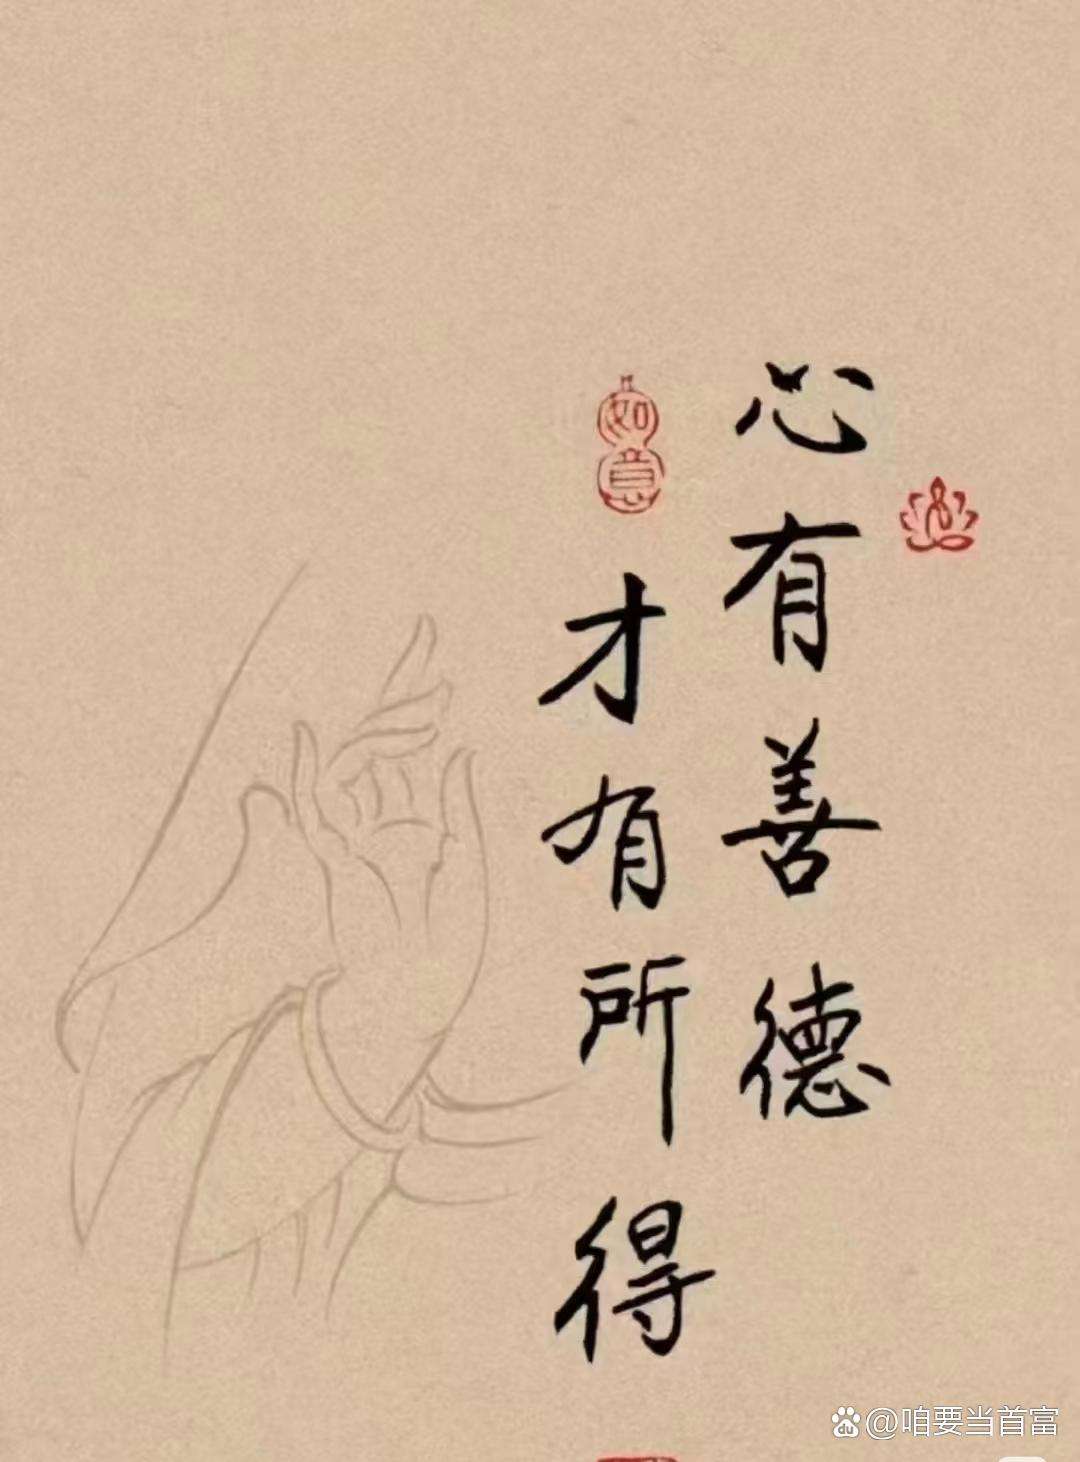 心有善德
如意
才有所得
@咱要当首富